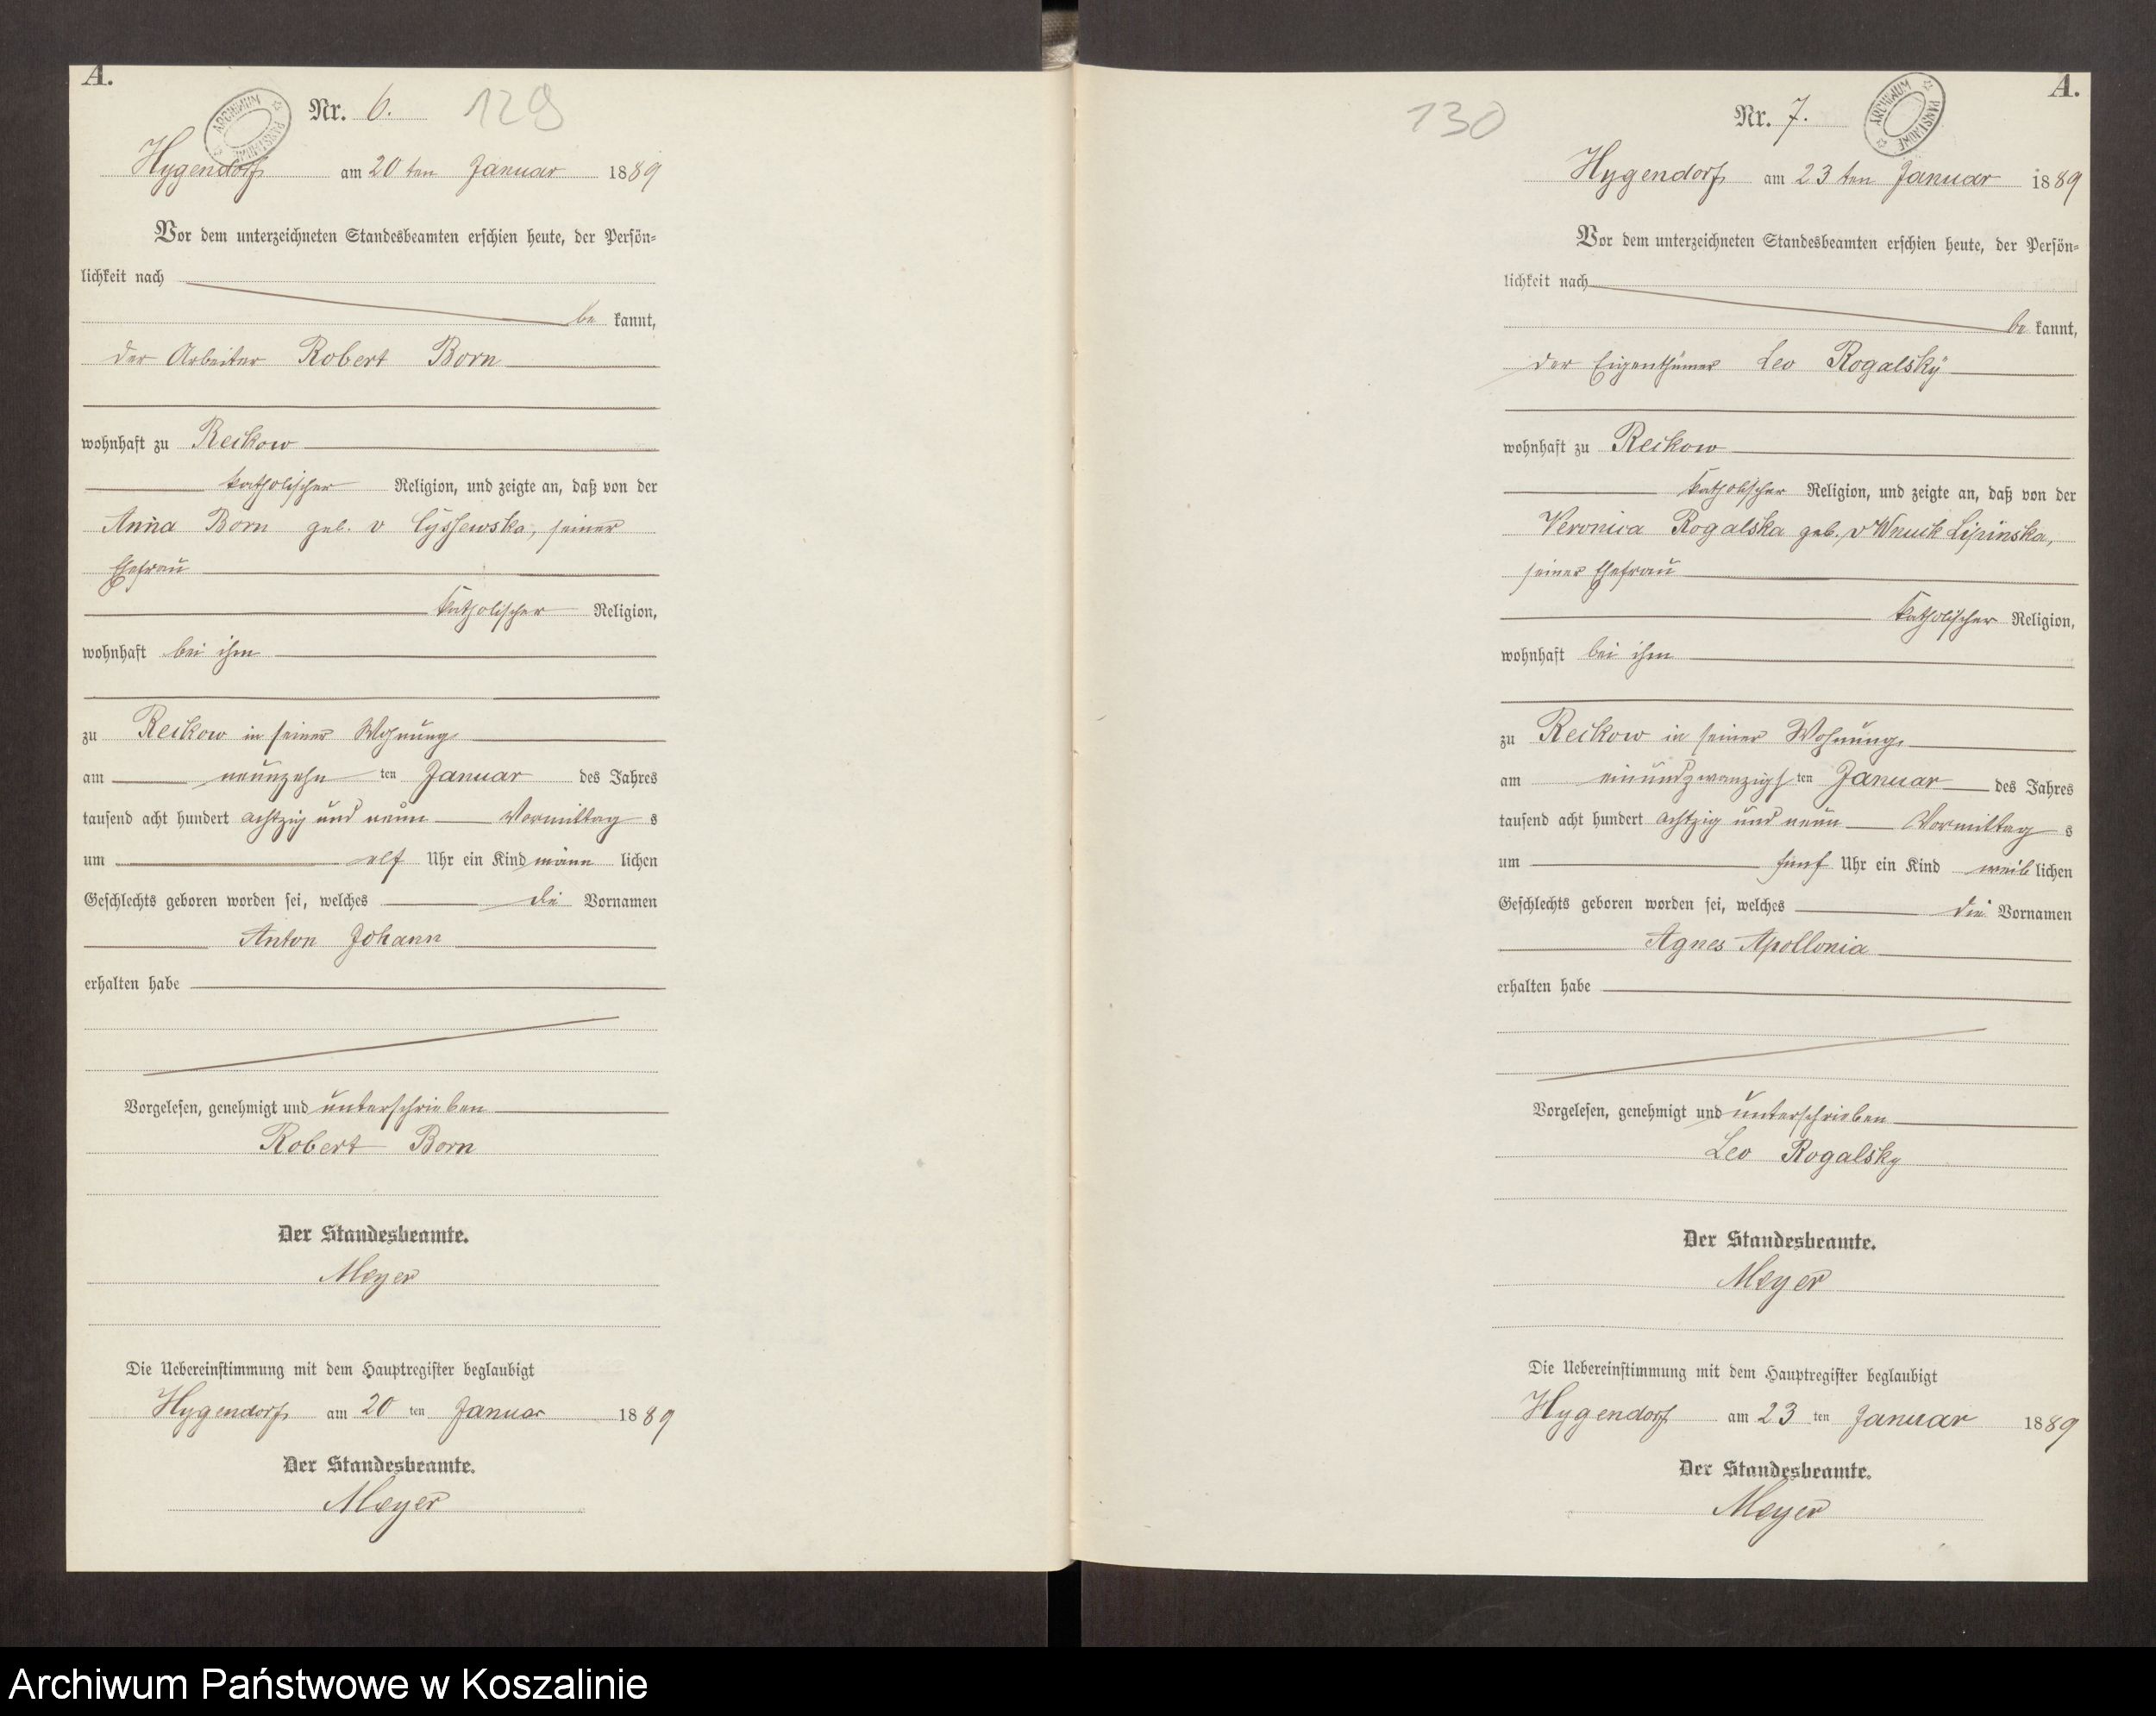 A.
ARCHIWUM PAŃSTWOWE
Nr. 6. 129
Hygendorf am 20 ten Januar 1889
Vor dem unterzeichneten Standesbeamten erschien heute, der Persön=
lichkeit nach
be kannt,
der Arbeiter Robert Born
wohnhaft zu Reckow
katholischer Religion, und zeigte an, daß von der
Anna Born geb. v Cyssewska, seiner
Ehefrau
katholischer Religion,
wohnhaft bei ihm
zu Reckow in seiner Wohnung
am neunzehn ten Januar des Jahres
tausend acht hundert achtzig und neun Vormittag s
um elf Uhr ein Kind männ lichen
Geschlechts geboren worden sei, welches die Vornamen
Anton Johann
erhalten habe
Vorgelesen, genehmigt und unterschrieben
Robert Born
Der Standesbeamte.
Meyer
Die Uebereinstimmung mit dem Hauptregister beglaubigt
Hygendorf am 20 ten Januar 1889
Der Standesbeamte.
Meyer
A.
ARCHIWUM PAŃSTWOWE
130 Nr. 7.
Hygendorf am 23 ten Januar 1889
Vor dem unterzeichneten Standesbeamten erschien heute, der Persön=
lichkeit nach
be kannt,
der Eigenthümer Leo Rogalsky
wohnhaft zu Reckow
katholischer Religion, und zeigte an, daß von der
Veronica Rogalska geb. v Wnuck Lipinska,
seiner Ehefrau
katholischer Religion,
wohnhaft bei ihm
zu Reckow in seiner Wohnung
am einundzwanzigs ten Januar des Jahres
tausend acht hundert achtzig und neun Vormittag s
um fünf Uhr ein Kind weib lichen
Geschlechts geboren worden sei, welches die Vornamen
Agnes Apollonia
erhalten habe
Vorgelesen, genehmigt und unterschrieben
Leo Rogalsky
Der Standesbeamte.
Meyer
Die Uebereinstimmung mit dem Hauptregister beglaubigt
Hygendorf am 23 ten Januar 1889
Der Standesbeamte.
Meyer
Archiwum Państwowe w Koszalinie